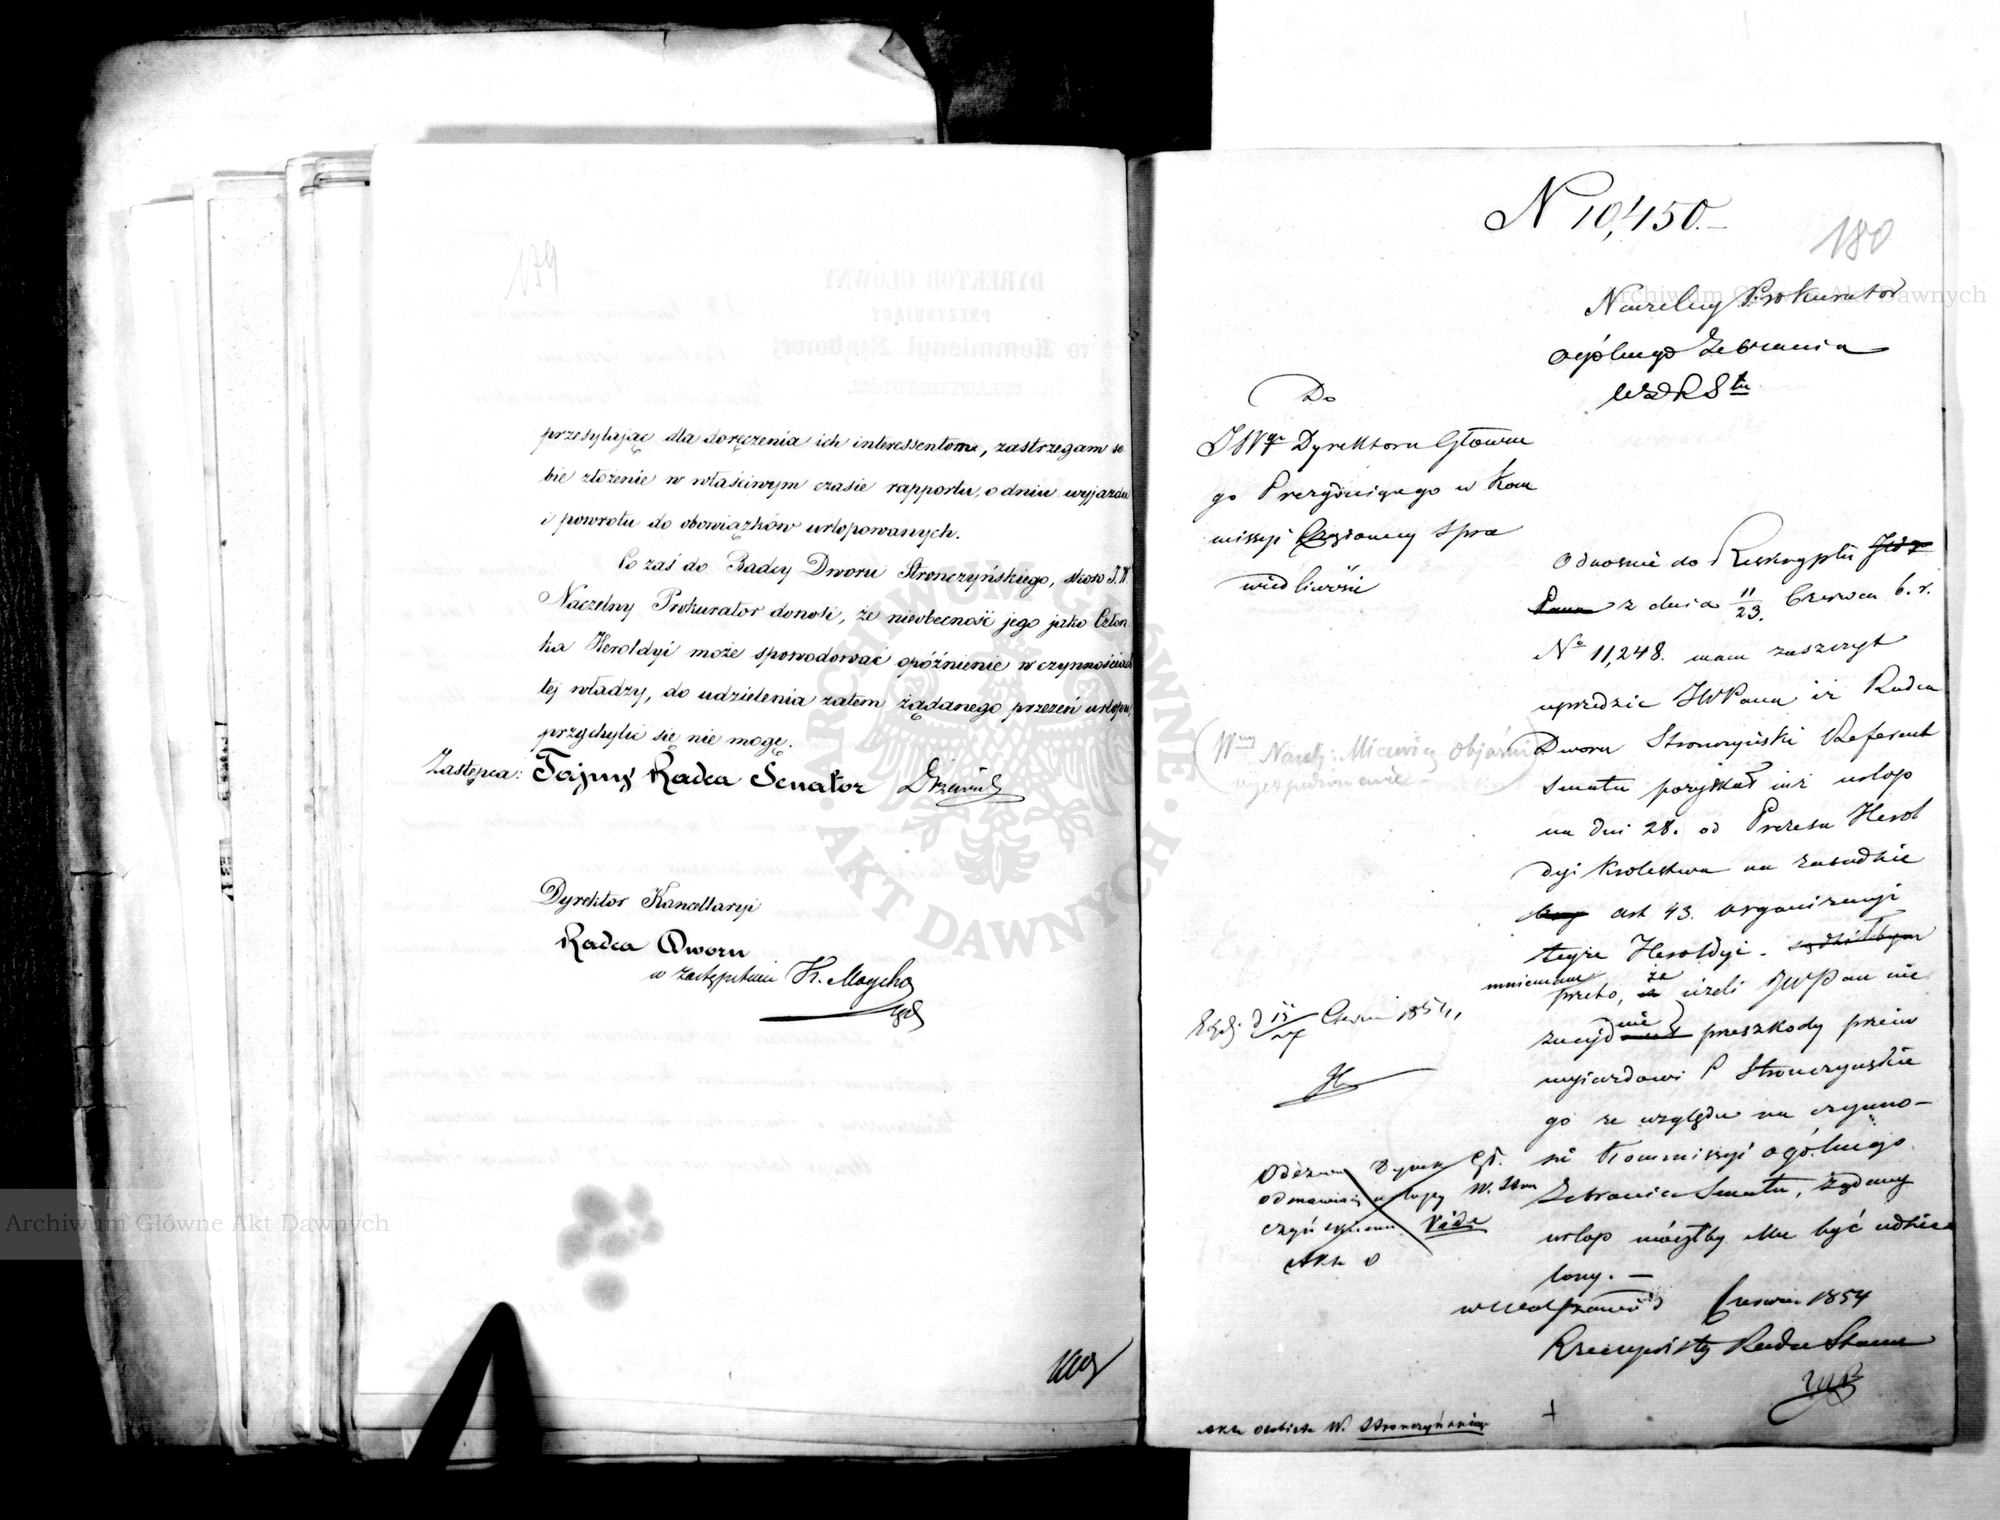 przesyłając dla doręczenia ich interessentom, zastrzegam so
bie złożenie w właściwym czasie rapportu, o dniu wyjazdu
i powrotu do obowiązków urlopowanych.
Co zaś do Radcy Dworu Stronczyńskiego, skoro J.W.
Naczelny Prokurator donosi, że nieobecność jego jako Człon
ka Heroldyi może spowodować opóźnienie w czynnościach
tej władzy, do udzielenia zatem żądanego przezeń urlopu,
przychylić się nie mogę.
Zastępca: Tajny Radca Senator
Dyrektor Kancellaryi
Radca Dworu
w zastępstwie
179
DYREKTOR GŁÓWNY
PREZYDUJĄCY
w Kommissyi Rządowej
SPRAWIEDLIWOŚCI.
N 10,450.-
180
Naczelny Prokurator
Ogólnego Zebrania
WDRStu
Do
JWgo Dyrektora Główne
go Prezydującego w Kom
missyi Rządowey Spra
wiedliwości
Odnośnie do Reskryptu
Pana z dnia 11/23. Czerwca b. r.
No 11,248. mam zaszczyt
uprzedzić JWPana iż Radca
Dworu Stronczyński Referent
Senatu pozyskał już urlop
na dni 28. od Prezesa Herol
dyi Królestwa na zasadzie
art 43. organizacyi
tejże Heroldyi. sądziłbym
mniemam
przeto, że jeżeli JWPan nie
znajdzie przeszkody przeciw
wyjazdowi P Stronczyńskie
go ze względu na czynno-
ści Kommissyi ogólnego
Zebrania Senatu, żądany
urlop mógłby Mu być udzie
lony. —
Czerwca 1854
Rzeczywisty Radca Stanu
Wny Naczel: Micewicz objaśni
wyexpediowanie -
Exp. d 15/27 Czerwca 1854.
Odezwa Dyrek Gł.
odmawiając urlopu W. Stron
czyńskiemu Vide
Akta O
Akta osobiste W. Stronczyńskiego
Archiwum Główne Akt Dawnych
Archiwum Główne Akt Dawnych
ARCHIWUM GŁÓWNE · AKT DAWNYCH ·